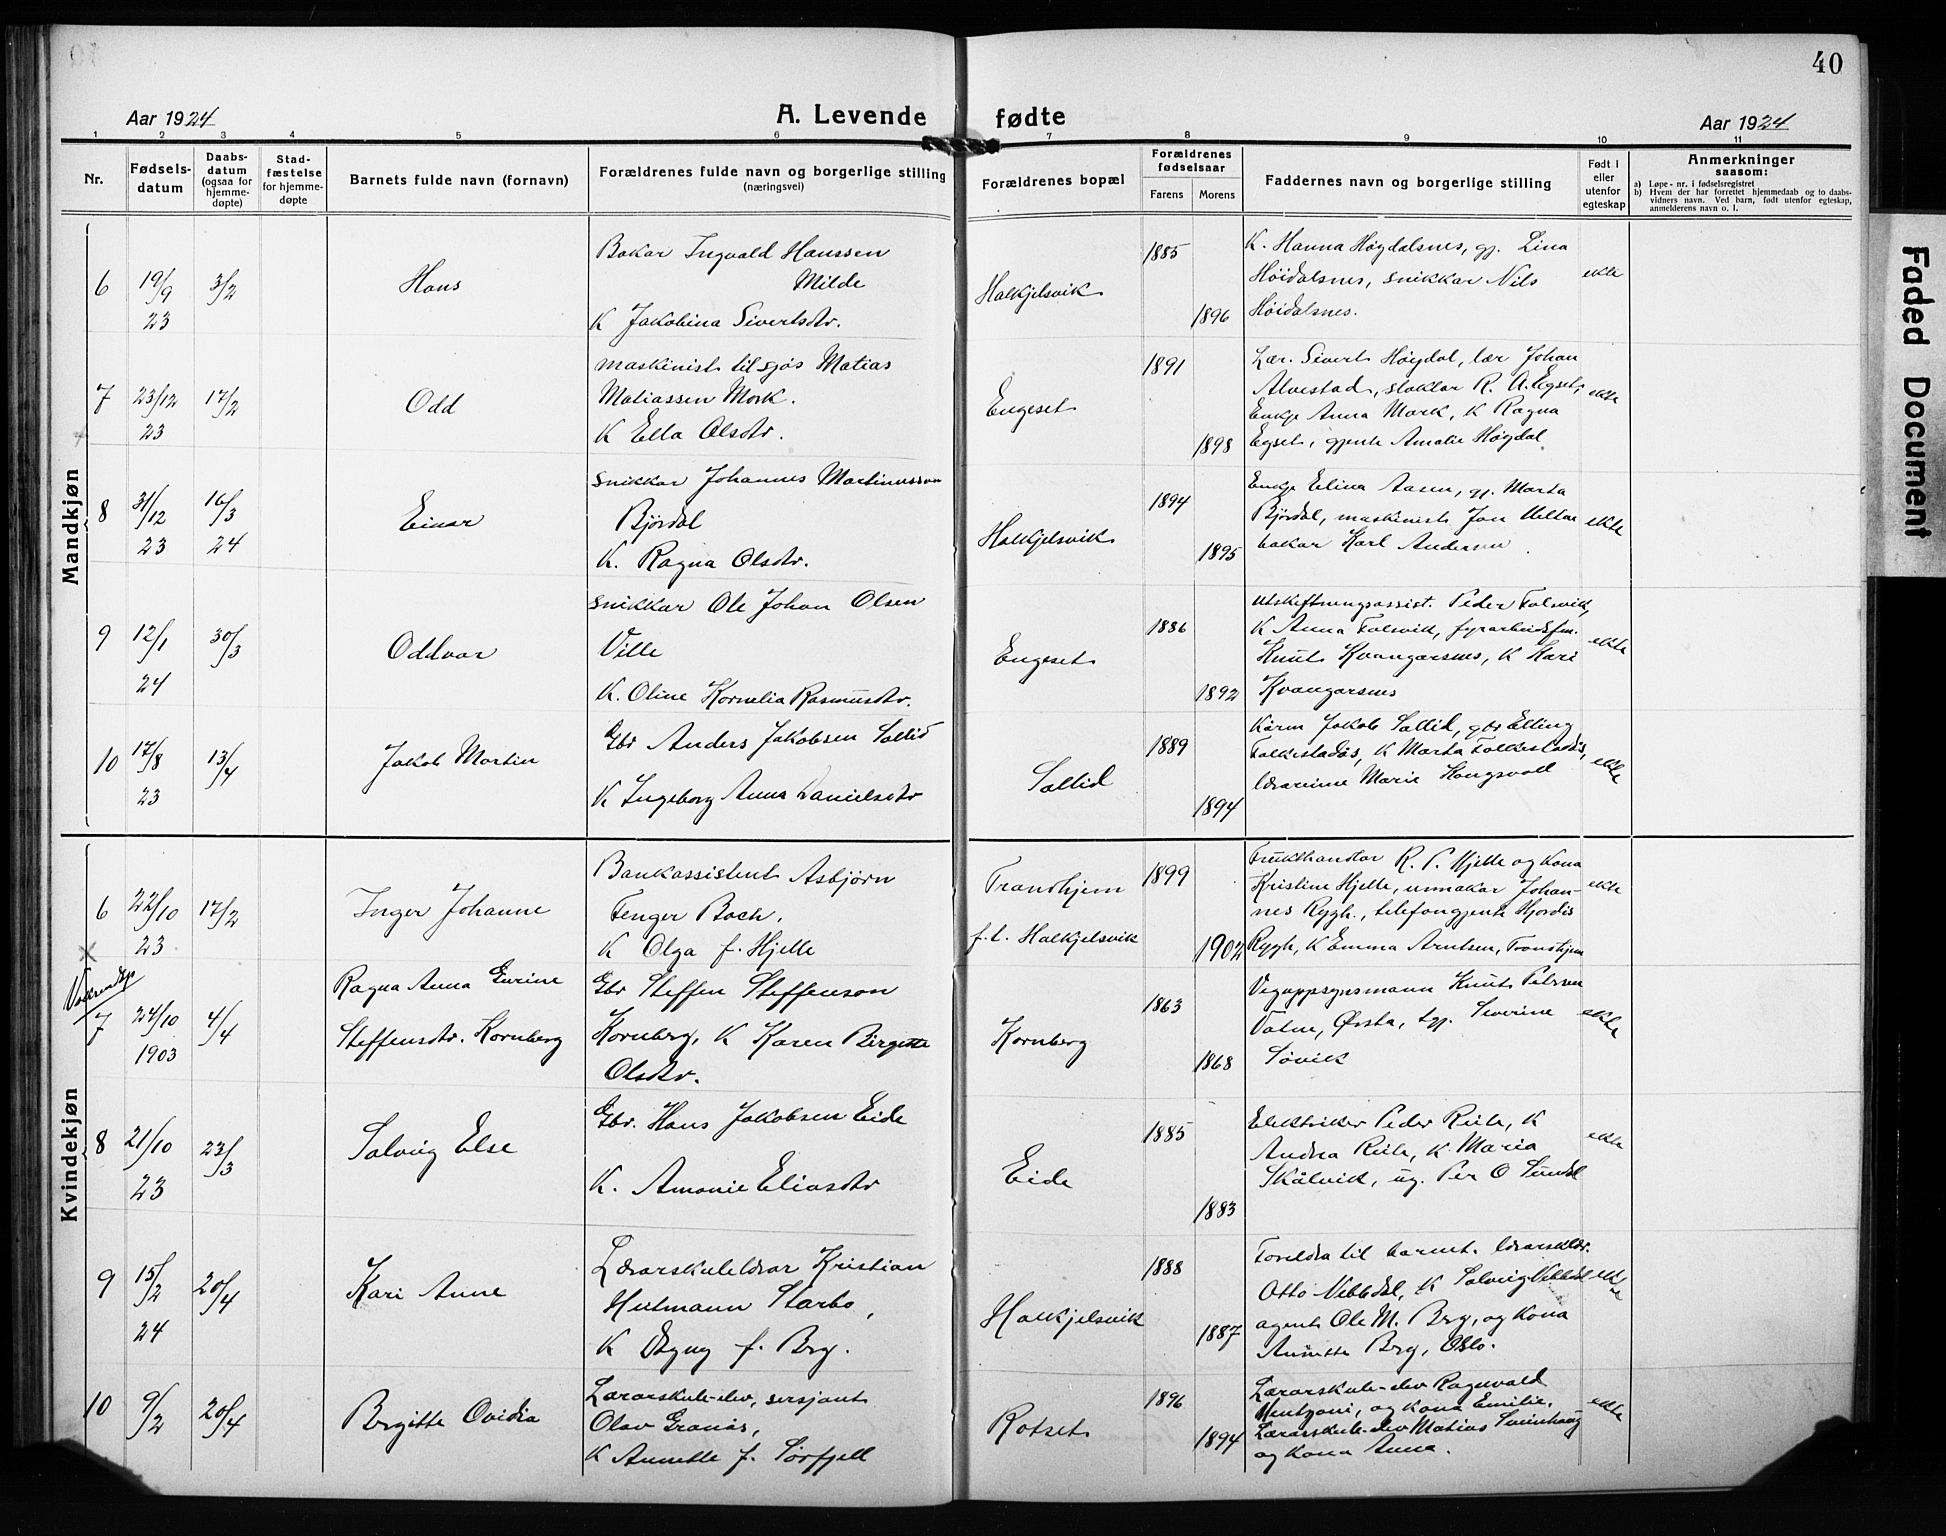 40
Aar 1924
A. Levende fødte
Aar 1924
1 2 3 4 5 6 7 8 9 10 11
Nr.
Fødsels-
datum
Daabs-
datum
(ogsaa for
hjemme-
døpte)
Stad-
fæstelse
for hjemme-
døpte
Barnets fulde navn (fornavn)
Forældrenes fulde navn og borgerlige stilling
(næringsvei)
Forældrenes bopæl
Forældrenes
fødselsaar
Farens Morens
Faddernes navn og borgerlige stilling
Født i
eller
utenfor
egteskap
Anmerkninger
saasom:
a) Løpe-nr. i fødselsregistret
b) Hvem der har forrettet hjemmedaab og to daabs-
vidners navn. Ved barn, født utenfor egteskap,
anmelderens navn o. l.
Mandkjøn
6
19/9
23
3/2
Hans
Bakar Ingvald Hanssen
Milde
K Jakobina Sivertsdtr.
Halkjelsvik
1885
1896
K. Hanna Høgdalsnes, gj. Lina
Høidalsnes, snikkar Nils
Høidalsnes.
ekte
7
23/12
23
17/2
Odd
maskinist til sjøs Matias
Matiassen Mork.
K Ella Olsdtr.
Engeset
1891
1898
Lær. Sivert Høydal, lær Johan
Alvestad, R. A. Egset,
Enkje Anna Mork, K Ragna
Egset, gjente Amalie Høydal
ekte
8
31/12
23
16/3
24
Einar
snikkar Johannes Martinussen
Bjørdal
K. Ragna Olsdtr.
Halkjelsvik
1894
1895
Enkje Elina Aasen, gj. Marta
Bjørdal, maskinist Jon
bakar Karl Andersen
ekte
9
12/1
24
30/3
Oddvar
snikkar Ole Johan Olsen
Ville
K. Oline Kornelia Rasmusdtr.
Engeset
1886
1892
Utskiftningsassist. Peder Folsvik,
K Anna Folsvik, fyrarbeidsfm.
Knut Kvangarsnes, K Kari
Kvangarsnes
ekte
10
17/8
23
13/4
Jakob Martin
Gbr Anders Jakobsen Sollid
K Ingeborg Anna Danielsdtr
Sollid
1889
1894
Kårm Jakob Sollid, gbr Elling
Folkestadås, K Marta Folkestadås,
lærarinne Marie Hongsvoll
ekte
Kvindekjøn
6
22/10
23
17/2
Inger Johanne
Bankassistent Asbjørn
Fenger Boch.
K Olga f. Hjelle
Trondhjem
f. t. Halkjelsvik
1899
1902
Frukthandlar R. P. Hjelle og kona
Kristine Hjelle, urmakar Johan-
nes Rygh, telefongjente Hjørdis
Rygh, K Emma Arntsen, Trondhjem
ekte
7
24/10
1903
4/4
Ragna Anna Gurine
Steffensdtr. Kornberg
Gbr Steffen Steffenson
Kornberg, K Karen Birgitte
Olsdtr.
Kornberg
1863
1868
Vegoppsynsmann Knut Petersen
Vatne, Ørsta, tgj. Severine
Søvik
ekte
8
21/10
23
23/3
Solveig Else
Gbr. Hans Jakobsen Eide
K. Amanie Eliasdtr
Eide
1885
1883
Elektriker Peder Reite, K
Andrea Reite, K Maria
Skålvik, ug. Per O Sundal
ekte
9
15/2
24
20/4
Kari Anne
Lærarskulelærar Kristian
Heitmann Starbo,
K Dagny f. Berg.
Halkjelsvik
1888
1887
Foreldra til barnet. lærarsklær.
Otto Vebbdal, K Solveig Vebbdal
agent Ole M. Berg, og kona
Annette Berg, Oslo.
ekte
10
9/2
20/4
Bergitte Ovidia
Lærarskule-elev, sersjant
Olav Granås,
K Annette f. Sørfjell
Rotset
1896
1894
Lærarskule-elev Ragnvald
Mentzoni, og kona Emilie,
Lærarskule-elev Matias Sveinhaug
og kona Anna.
ekte
Faded Document